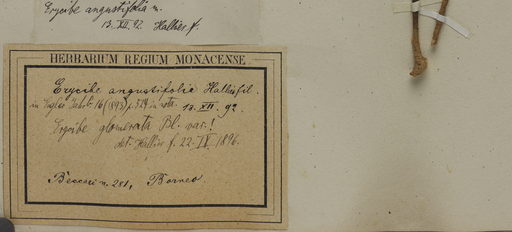 Erycibe angustifolia n.
13. XII. 92. Hallier f.
HERBARIUM REGIUM MONACENSE
Erycibe angustifolia Hallier fil.
in Engler Jahrb. 16 (1893) p. 529 in nota. 13. XII. 92.
Erycibe glomerata Bl. var.!
det. Hallier f. 22. IX. 1896.
Beccari n. 281, Borneo.